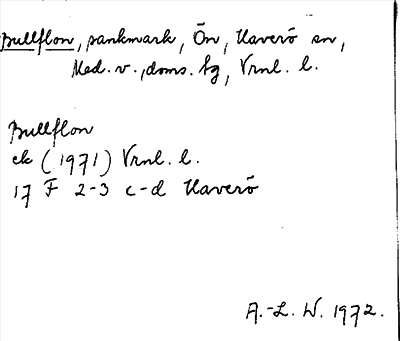 Bullflon, sankmark, Ön, Haverö sn,
Med. v., doms. hg, Vrnl. l.
Bullflon
ek (1971) Vrnl. l.
17 F 2-3 c-d Haverö
A.-L. W. 1972.